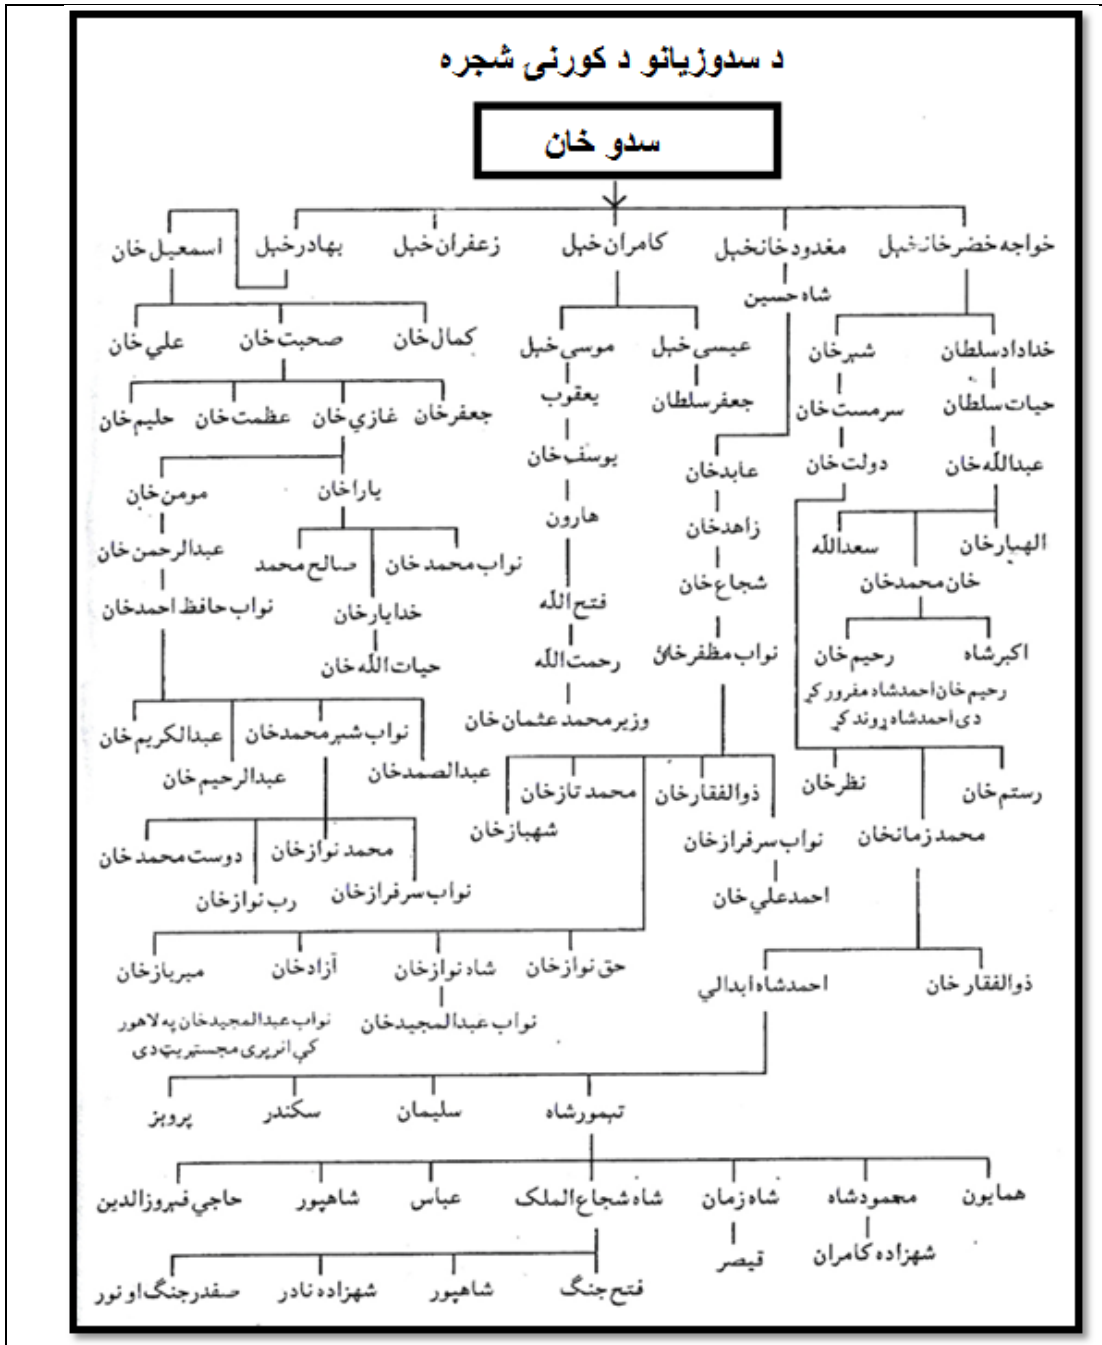 د سدوزيانو د كورنۍ شجره
سدو خان
خواجه خضرخانخېل
مغدودخانخېل
کامران خېل
زعفران خېل
بهادرخېل
اسمعيل خان
شاه حسين
خداداد سلطان
شېرخان
عيسی خېل
موسی خېل
کمال خان
صحبت خان
علي خان
حيات سلطان
سرمست خان
جعفر سلطان
يعقوب
جعفرخان
غازي خان
عظمت خان
حليم خان
عبدالله خان
دولت خان
عابدخان
يوسف خان
ياراخان
مومن خان
الهيارخان
سعدالله
زاهدخان
هارون
نواب محمدخان
صالح محمد
عبدالرحمن خان
خان محمدخان
شجاع خان
فتح الله
خدايارخان
نواب حافظ احمدخان
اکبرشاه
رحيم خان
نواب مظفرخان
رحمت الله
حيات الله خان
رحيم خان احمدشاه مفرور کړ
دی احمدشاه ړوند کړ
وزيرمحمد عثمان خان
نواب شېرمحمدخان
عبدالکريم خان
عبدالصمدخان
عبدالرحيم خان
رستم خان
نظرخان
ذوالفقارخان
محمد تازخان
شهبازخان
محمد زمانخان
نواب سرفرازخان
محمد نوازخان
دوست محمدخان
احمدعلي خان
نواب سرفرازخان
رب نوازخان
حق نوازخان
شاه نوازخان
آزادخان
ميربازخان
ذوالفقارخان
احمدشاه ابدالي
نواب عبدالمجيدخان
نواب عبدالمجيدخان په لاهور
کې انريري مجسټريټ دی
تېمورشاه
سليمان
سکندر
پروېز
همايون
محمودشاه
شاه زمان
شاه شجاع الملک
عباس
شاهپور
حاجي فېروزالدين
شهزاده کامران
قيصر
فتح جنگ
شاهپور
شهزاده نادر
صفدرجنگ او نور